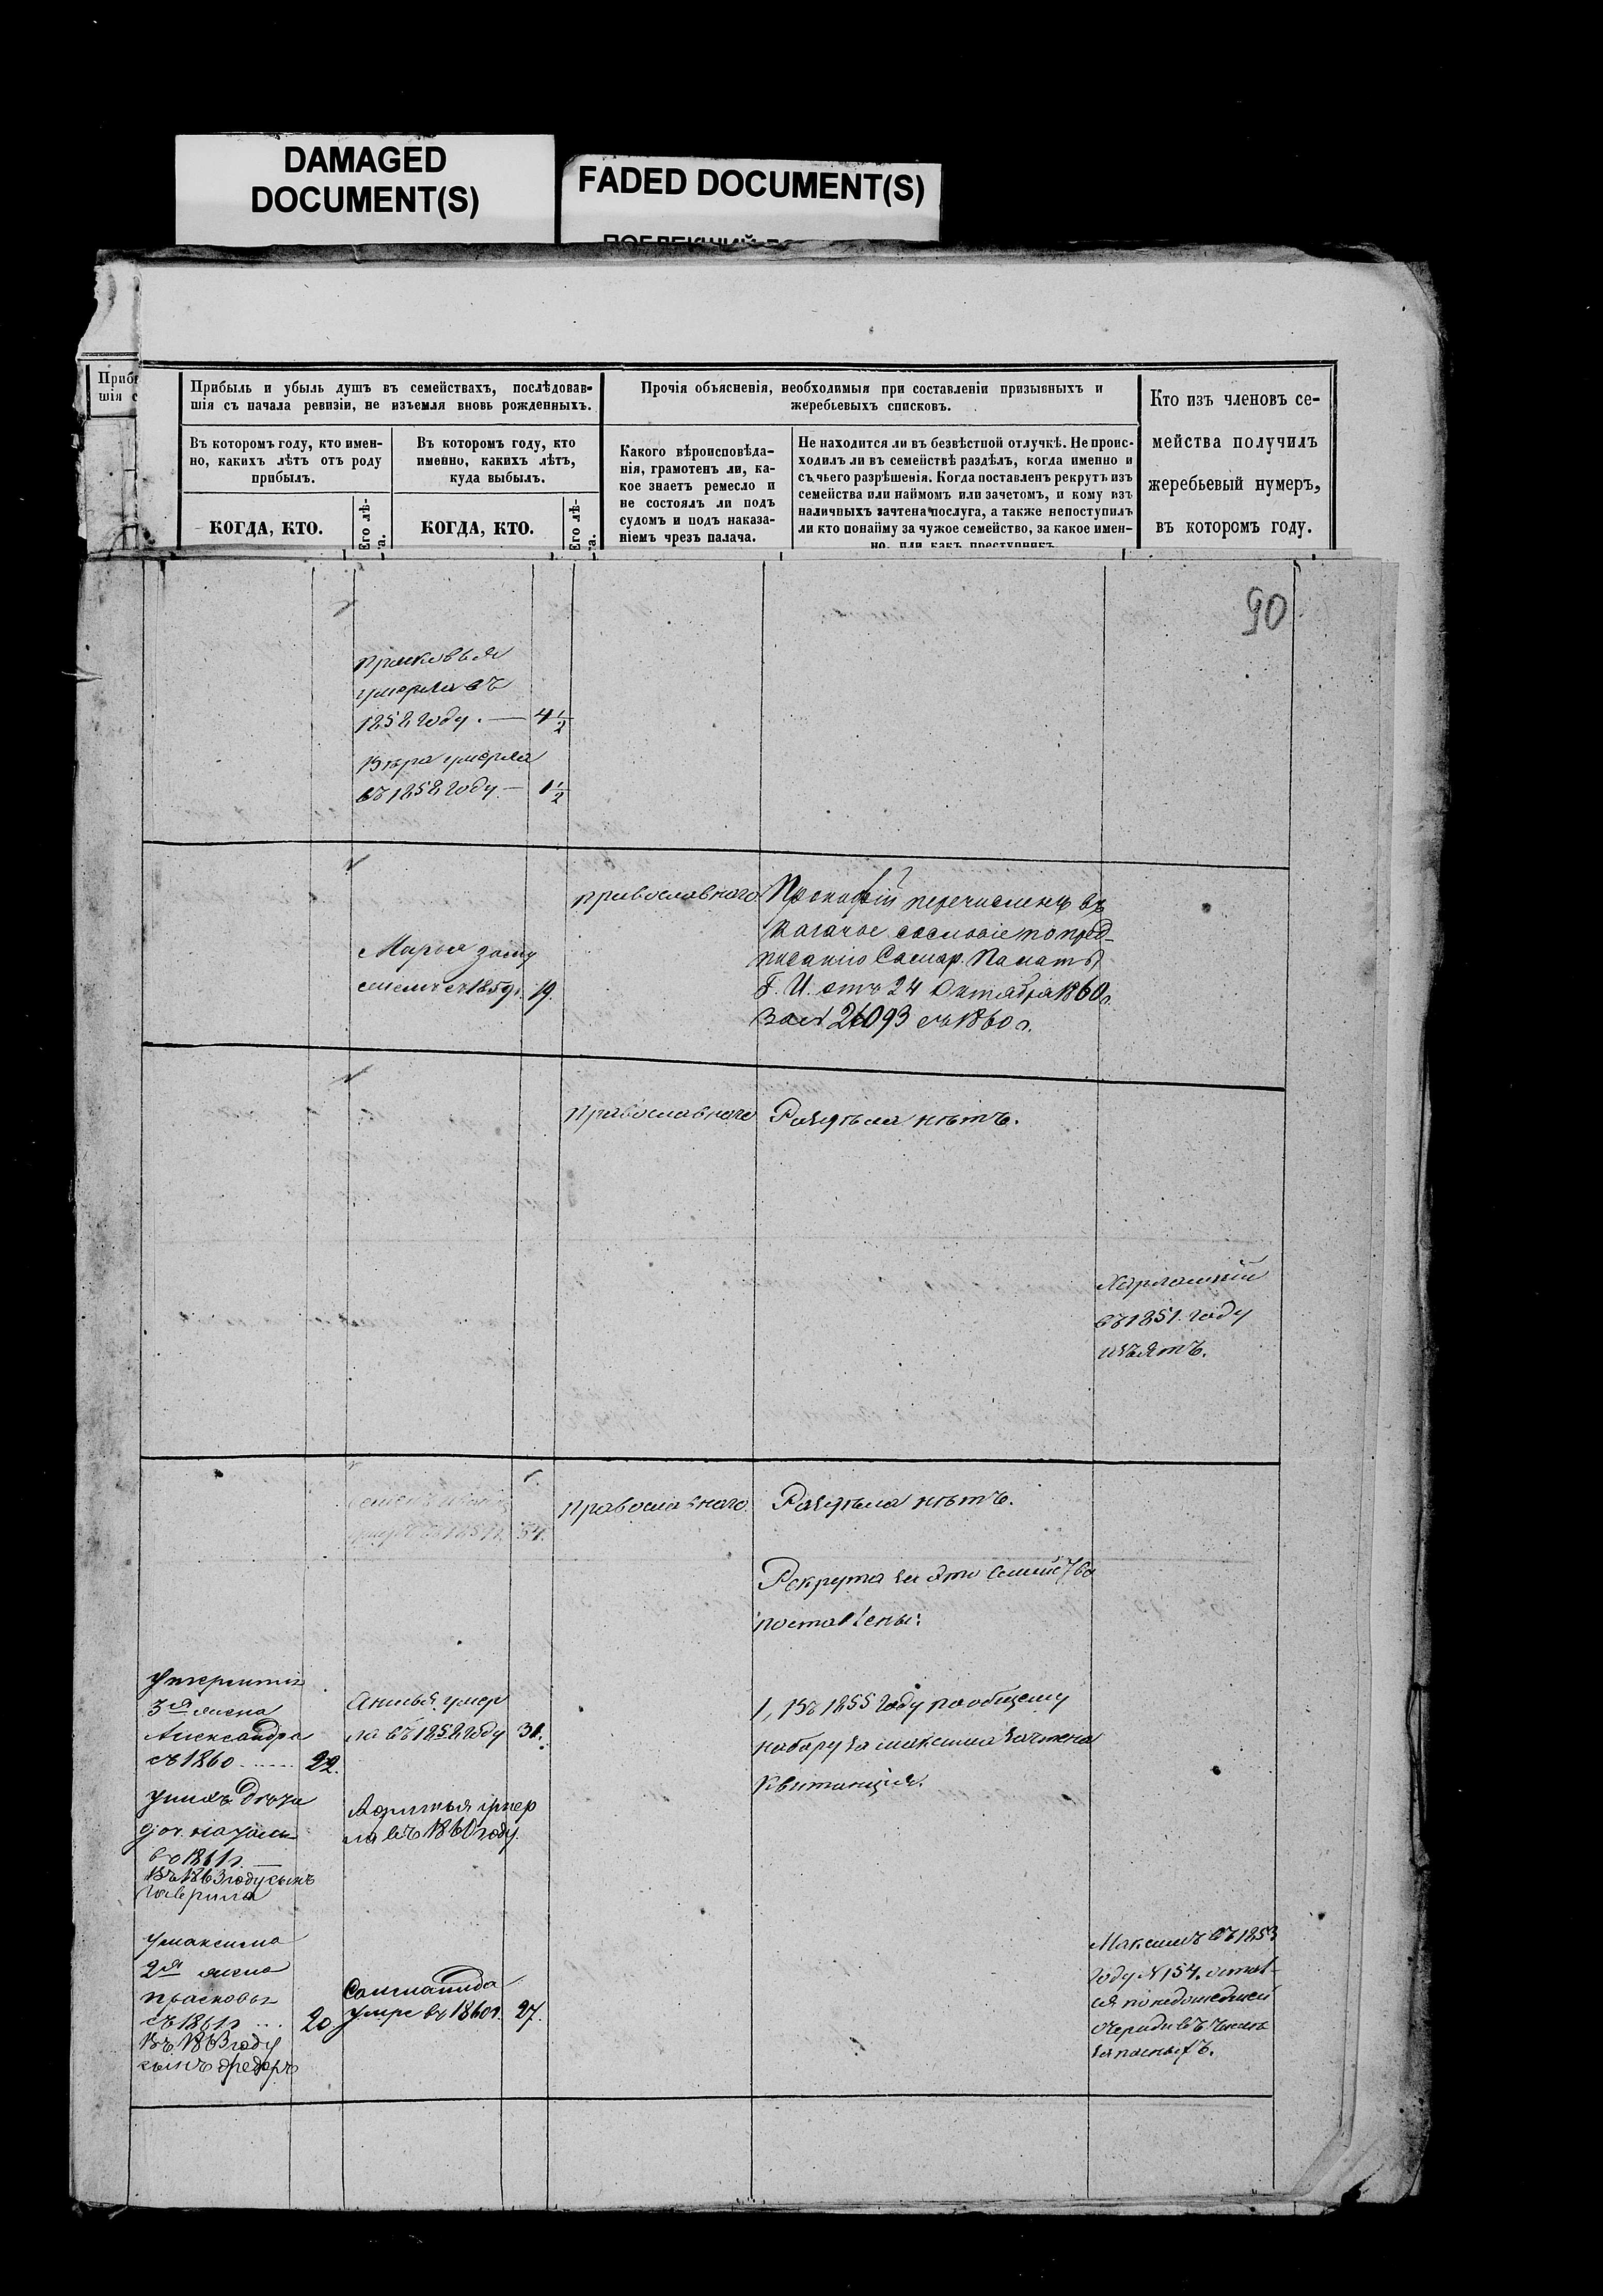 DAMAGED
DOCUMENT(S)
FADED DOCUMENT(S)
Приб
шія с
Прибыль и убыль душъ въ семействахъ, послѣдовав-
шія съ начала ревизіи, не изъемля вновь рожденныхъ.
Въ которомъ году, кто имен-
но, какихъ лѣтъ отъ роду
прибылъ.
КОГДА, КТО.
Его лѣ-
та.
Въ которомъ году, кто
именно, какихъ лѣтъ,
куда выбылъ.
КОГДА, КТО.
Его лѣ-
та.
Прочія объясненія, необходимыя при составленіи призывныхъ и
жеребьевыхъ списковъ.
Какого вѣроисповѣда-
нія, грамотенъ ли, ка-
кое знаетъ ремесло и
не состоялъ ли подъ
судомъ и подъ наказа-
ніемъ чрезъ палача.
Не находится ли въ безвѣстной отлучкѣ. Не проис-
ходилъ ли въ семействѣ раздѣлъ, когда именно и
съ чьего разрѣшенія. Когда поставленъ рекрутъ изъ
семейства или наймомъ или зачетомъ, и кому изъ
наличныхъ зачтена послуга, а также непоступилъ
ли кто понайму за чужое семейство, за какое имен-
но, или какъ преступникъ
Кто изъ членовъ се-
мейства получилъ
жеребьевый нумеръ,
въ которомъ году.
90
прасковья
умерла въ
1858 году. — 4 1/2
Вѣра умерла
въ 1858 году — 1 1/2
православнаго
Прокофій перечисленъ въ
казачье сословіе по пред-
писанію Самар. Палаты
Г. И. отъ 24 Октября 1860 г.
за № 26093 съ 1860 г.
Марья заму
съ 1859 г. 19.
православнаго
Раздѣла нѣтъ.
Харлампій
въ 1851 году
изъятъ.
умеръ въ 54.
православнаго
Раздѣла нѣтъ.
Рекрута за это Семейство
поставлены:
3я жена
Александра
съ 1860 ...... 22.
Анисья умер
ла въ 1858 году 31.
1, Въ 1855 году по общему
набору за максима зачтена
Квитанція.
у нихъ
доч.
въ 1861 г
Въ 1863 году сынъ
Гаврила
умер
ла въ 1860 году.
у максима
2я жена
прасковья
съ 1861 г ... 20.
Въ 1863 году
сынъ Ѳедоръ
умре въ 1860 г. 27.
Максимъ въ 1853
году № 154. остал-
ся по недошедшей
очереди въ числѣ
запасныхъ.